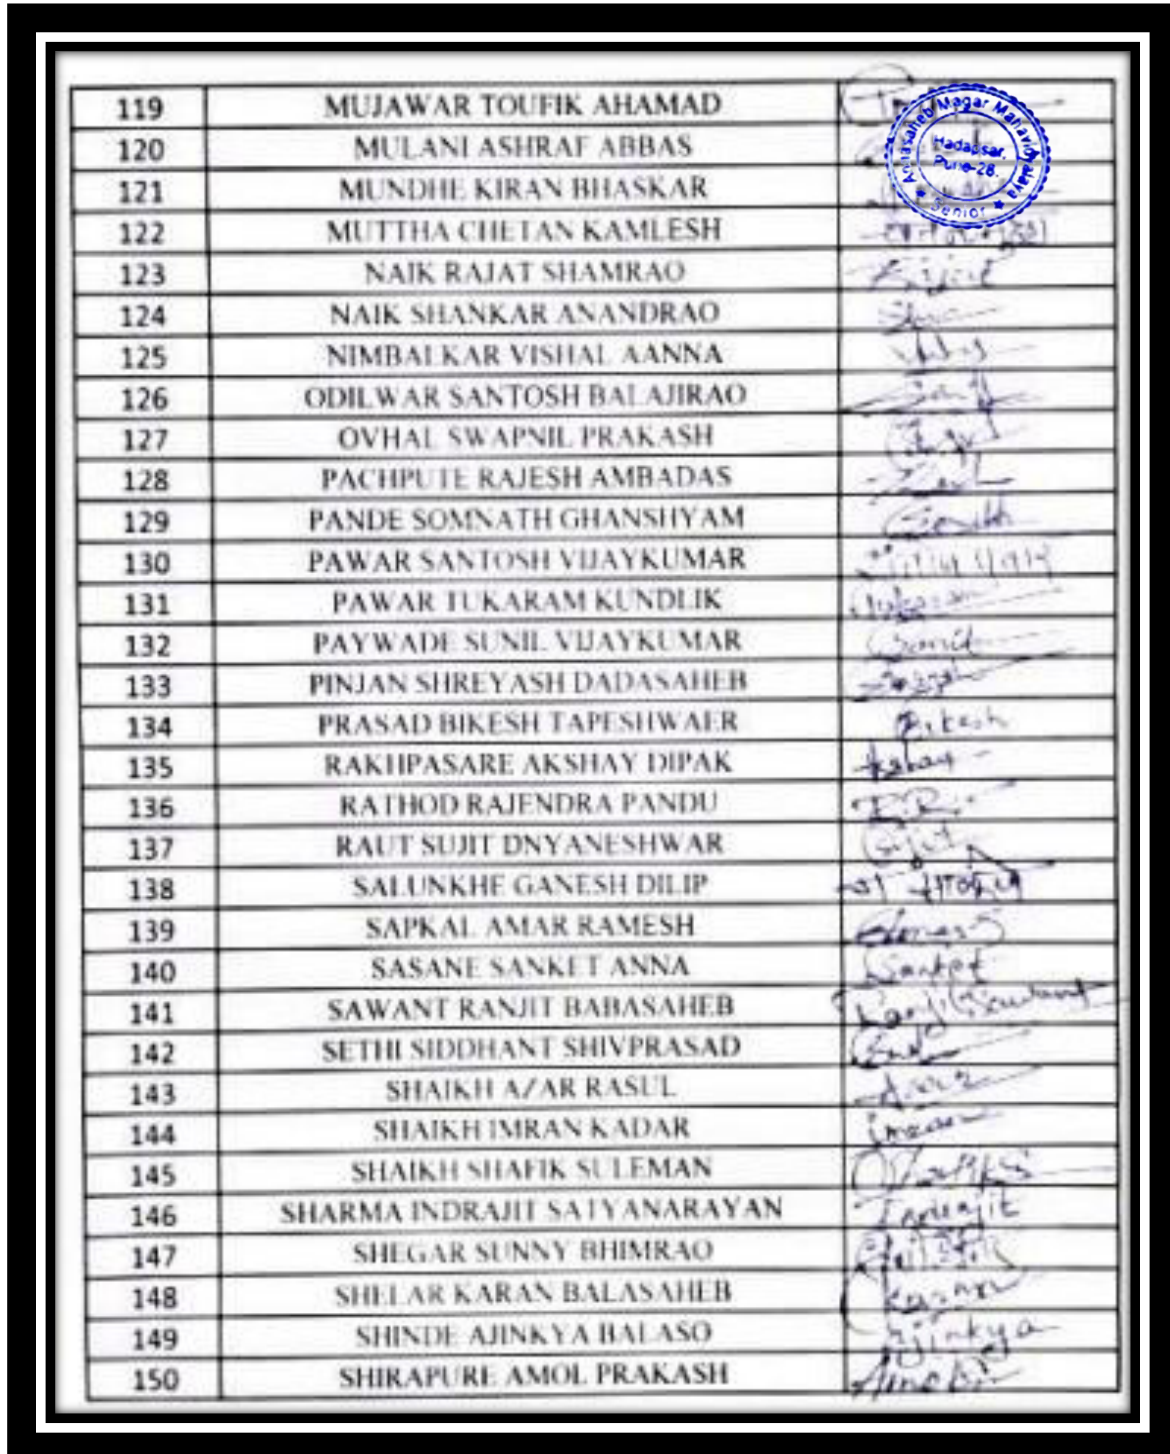 119 MUJAWAR TOUFIK AHAMAD
Annasaheb Magar Mahavidyalaya
Hadapsar,
Pune-28.
★ Senior ★
120 MULANI ASHRAF ABBAS
121 MUNDHE KIRAN BHASKAR
122 MUTTHA CHETAN KAMLESH
123 NAIK RAJAT SHAMRAO
124 NAIK SHANKAR ANANDRAO
125 NIMBALKAR VISHAL AANNA
126 ODILWAR SANTOSH BALAJIRAO
127 OVHAL SWAPNIL PRAKASH
128 PACHPUTE RAJESH AMBADAS
129 PANDE SOMNATH GHANSHYAM
130 PAWAR SANTOSH VIJAYKUMAR
131 PAWAR TUKARAM KUNDLIK Tukaram
132 PAYWADE SUNIL VIJAYKUMAR Sunil
133 PINJAN SHREYASH DADASAHEB
134 PRASAD BIKESH TAPESHWAER Bikesh
135 RAKHPASARE AKSHAY DIPAK Akshay
136 RATHOD RAJENDRA PANDU
137 RAUT SUJIT DNYANESHWAR Sujit
138 SALUNKHE GANESH DILIP
139 SAPKAL AMAR RAMESH
140 SASANE SANKET ANNA Sanket
141 SAWANT RANJIT BABASAHEB Ranjit Sawant
142 SETHI SIDDHANT SHIVPRASAD
143 SHAIKH AZAR RASUL
144 SHAIKH IMRAN KADAR
145 SHAIKH SHAFIK SULEMAN
146 SHARMA INDRAJIT SATYANARAYAN Indrajit
147 SHEGAR SUNNY BHIMRAO
148 SHELAR KARAN BALASAHEB Karan
149 SHINDE AJINKYA BALASO Ajinkya
150 SHIRAPURE AMOL PRAKASH